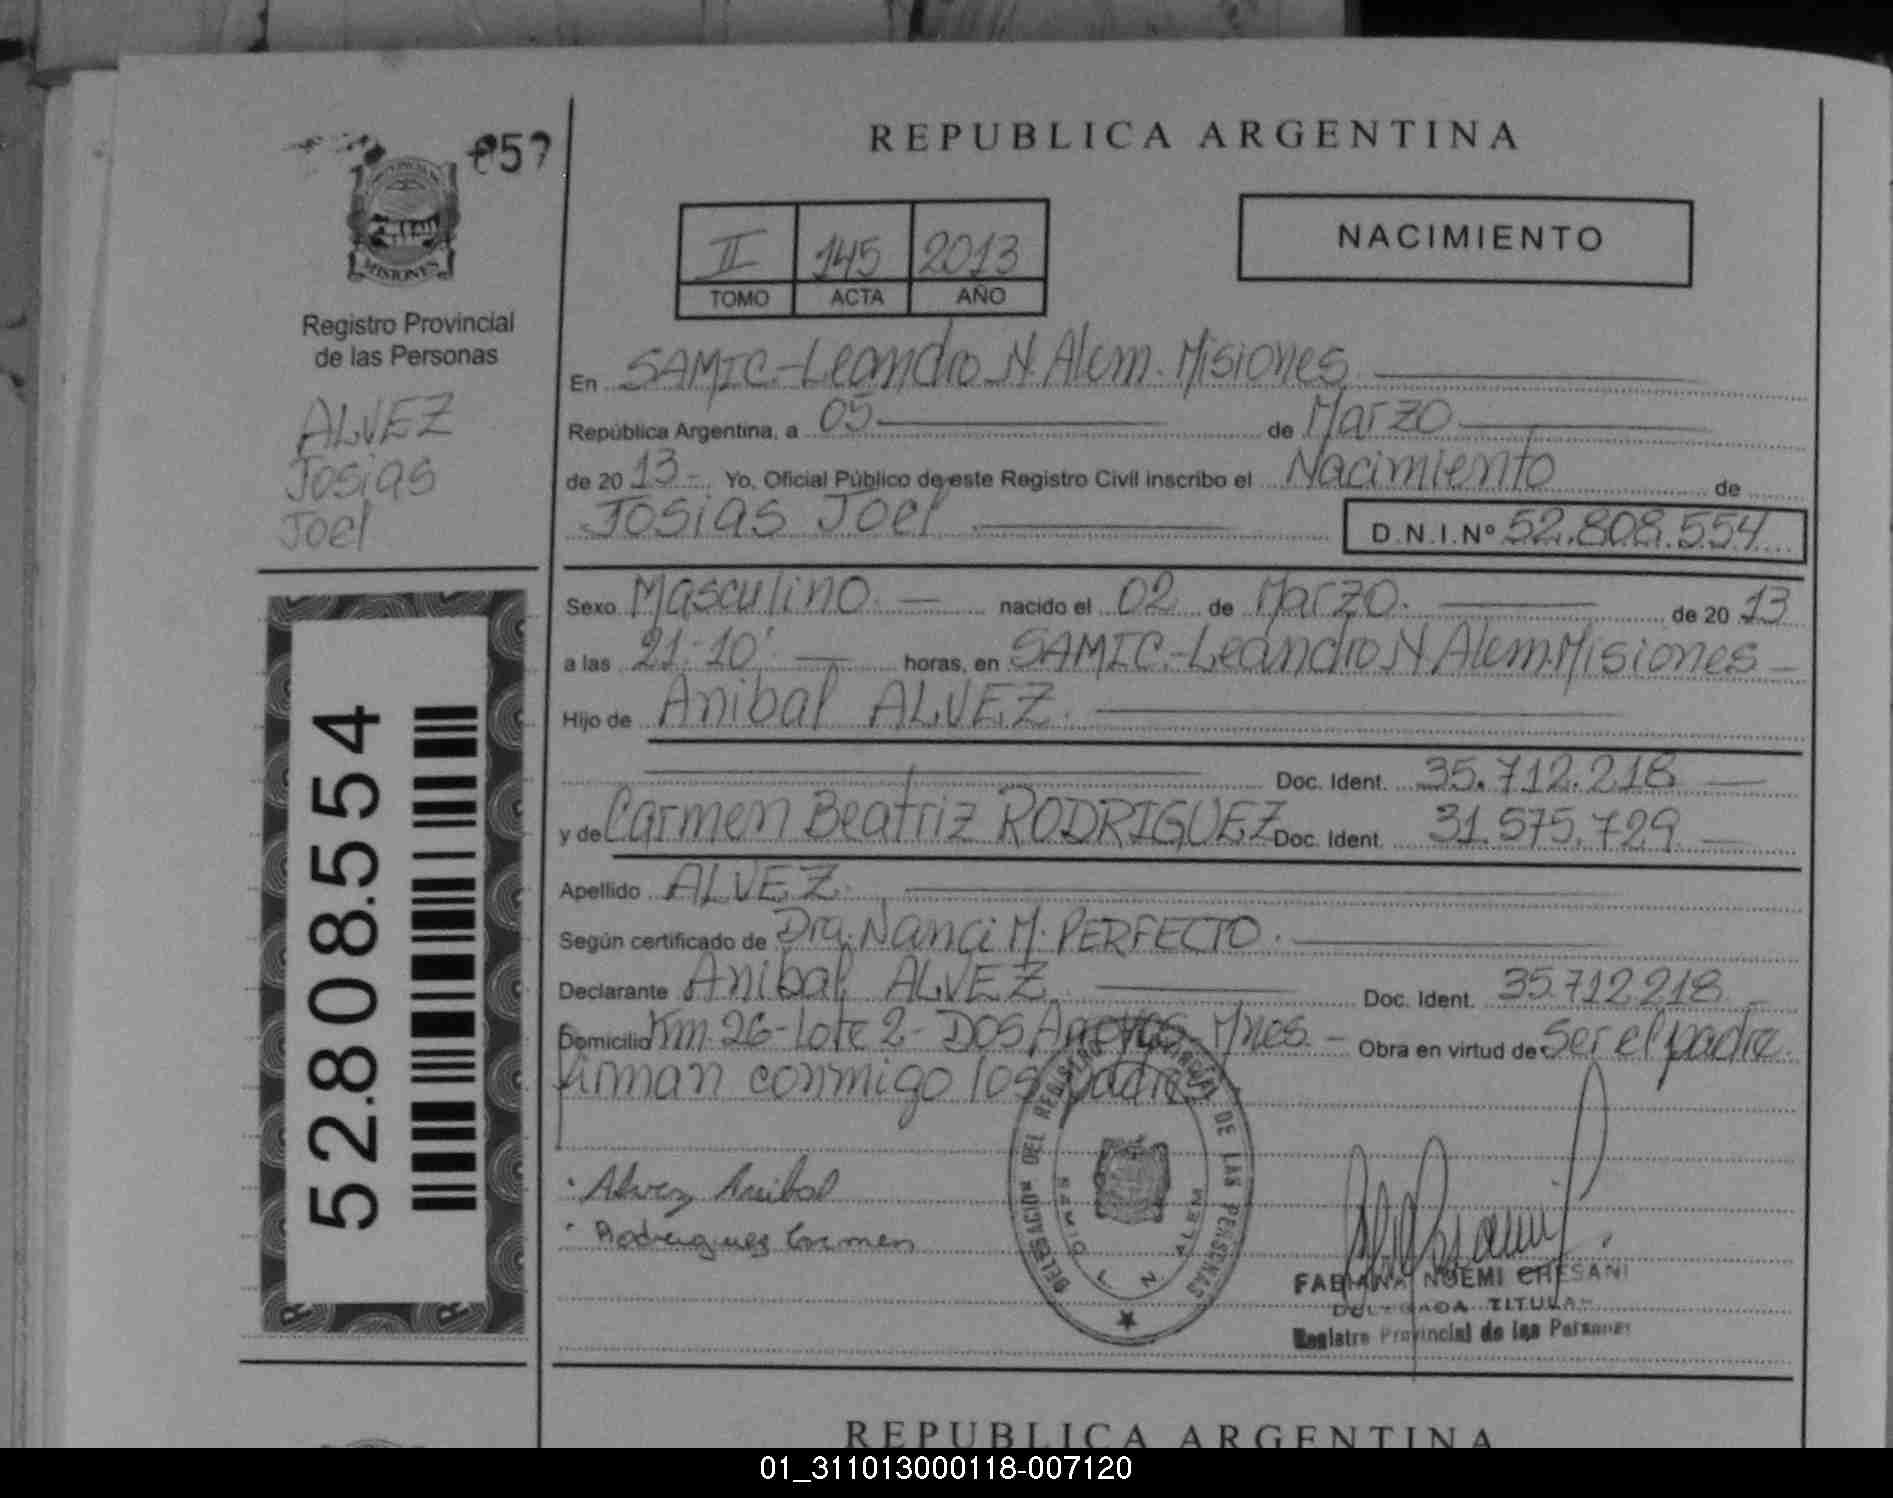 REPUBLICA ARGENTINA
057
MISIONES
Registro Provincial
de las Personas
ALVEZ
Josias
Joel
52.808.554
II 145 2013
TOMO ACTA AÑO
NACIMIENTO
En SAMIC.-Leandro N. Alem. Misiones
República Argentina, a 05 de Marzo
de 2013 - Yo, Oficial Público de este Registro Civil inscribo el Nacimiento de
Josias Joel
D.N.I.Nº 52.808.554
Sexo Masculino. nacido el 02 de Marzo. de 2013
a las 21:10' horas, en SAMIC.-Leandro N Alem. Misiones
Hijo de Anibal ALVEZ.
Doc. Ident. 35.712.218
y de Carmen Beatriz RODRIGUEZ Doc. Ident. 31.575.729
Apellido ALVEZ.
Según certificado de Dra. Nanci M. PERFECTO.
Declarante Anibal ALVEZ Doc. Ident. 35.712.218
Domicilio Km. 26-Lote 2-DOS Arroyos Mnes. - Obra en virtud de ser el padre.
firman conmigo los padres
Alvez Anibal
Rodriguez Carmen
DELEGACION DEL REGISTRO PROVINCIAL DE LAS PERSONAS
SAMIC L N ALEM
FABIANA NOEMI CHESANI
DELEGADA TITULAR
Registro Provincial de las Personas
REPUBLICA ARGENTINA
01_311013000118-007120